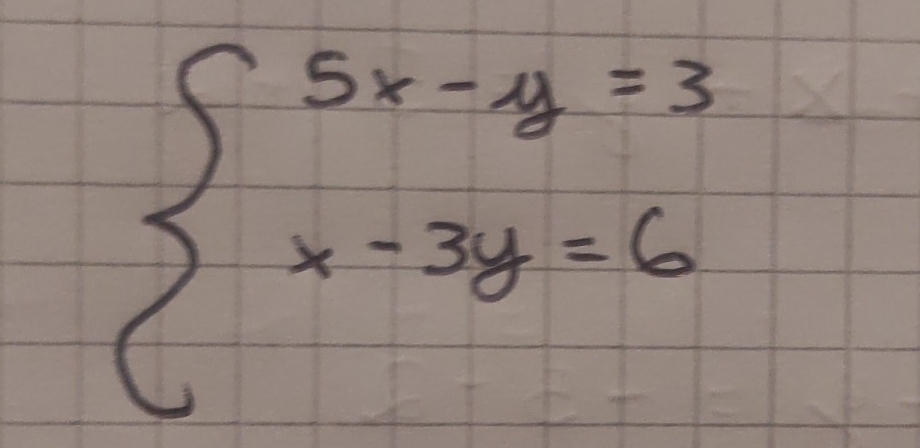 5x - y = 3
x - 3y = 6